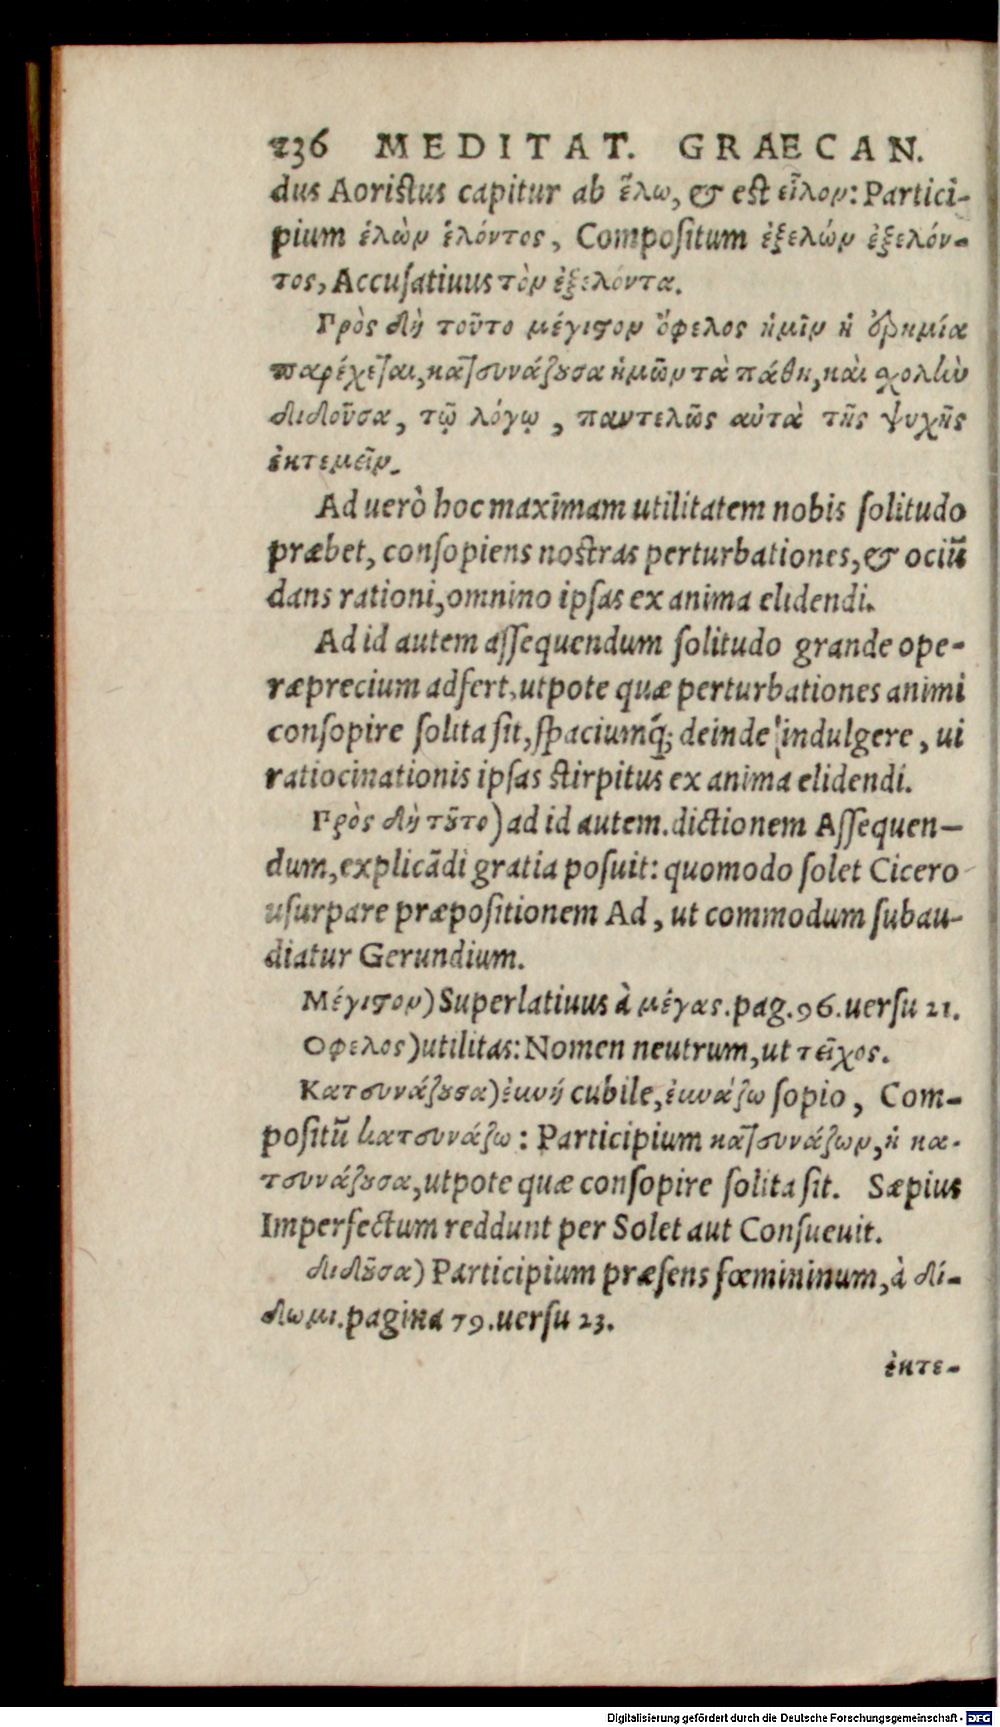 236 MEDITAT. GRAECAN.
dus Aoristus capitur ab ἕλω, & est εἷλον: Partici-
pium ἑλὼν ἑλόντος, Compositum ἐξελών ἐξελόν-
τος, Accusatiuus τὸν ἐξελόντα.
Πρὸς δὴ τοῦτο μέγιστον ὄφελος ἡμῖν ἡ ἐρημία
παρέχεται, κατσυνάζουσα ἡμῶν τὰ πάθη, καὶ σχολὴν
διδοῦσα, τῷ λόγῳ, παντελῶς αὐτὰ τῆς ψυχῆς
ἐκτεμεῖν.
Ad uerò hoc maximam utilitatem nobis solitudo
præbet, consopiens nostras perturbationes, & ociũ
dans rationi, omnino ipsas ex anima elidendi.
Ad id autem assequendum solitudo grande ope-
ræprecium adfert, utpote quæ perturbationes animi
consopire solita sit, spaciumq́; deinde indulgere, ui
ratiocinationis ipsas stirpitus ex anima elidendi.
Πρὸς δὴ τοῦτο) ad id autem. dictionem Assequen-
dum, explicãdi gratia posuit: quomodo solet Cicero
usurpare præpositionem Ad, ut commodum subau-
diatur Gerundium.
Μέγιστον) Superlatiuus à μέγας. pag. 96. uersu 21.
Οφελος) utilitas: Nomen neutrum, ut τεῖχος.
Κατσυνάζουσα) ἐυνή cubile, ἐυνάζω sopio, Com-
positũ κατσυνάζω: Participium κατσυνάζων, ἡ κα-
τσυνάζουσα, utpote quæ consopire solita sit. Sæpius
Imperfectum reddunt per Solet aut Consueuit.
διδοῦσα) Participium præsens fœmininum, à δί-
δωμι. pagina 79. uersu 23.
ἐκτε-
Digitalisierung gefördert durch die Deutsche Forschungsgemeinschaft - DFG